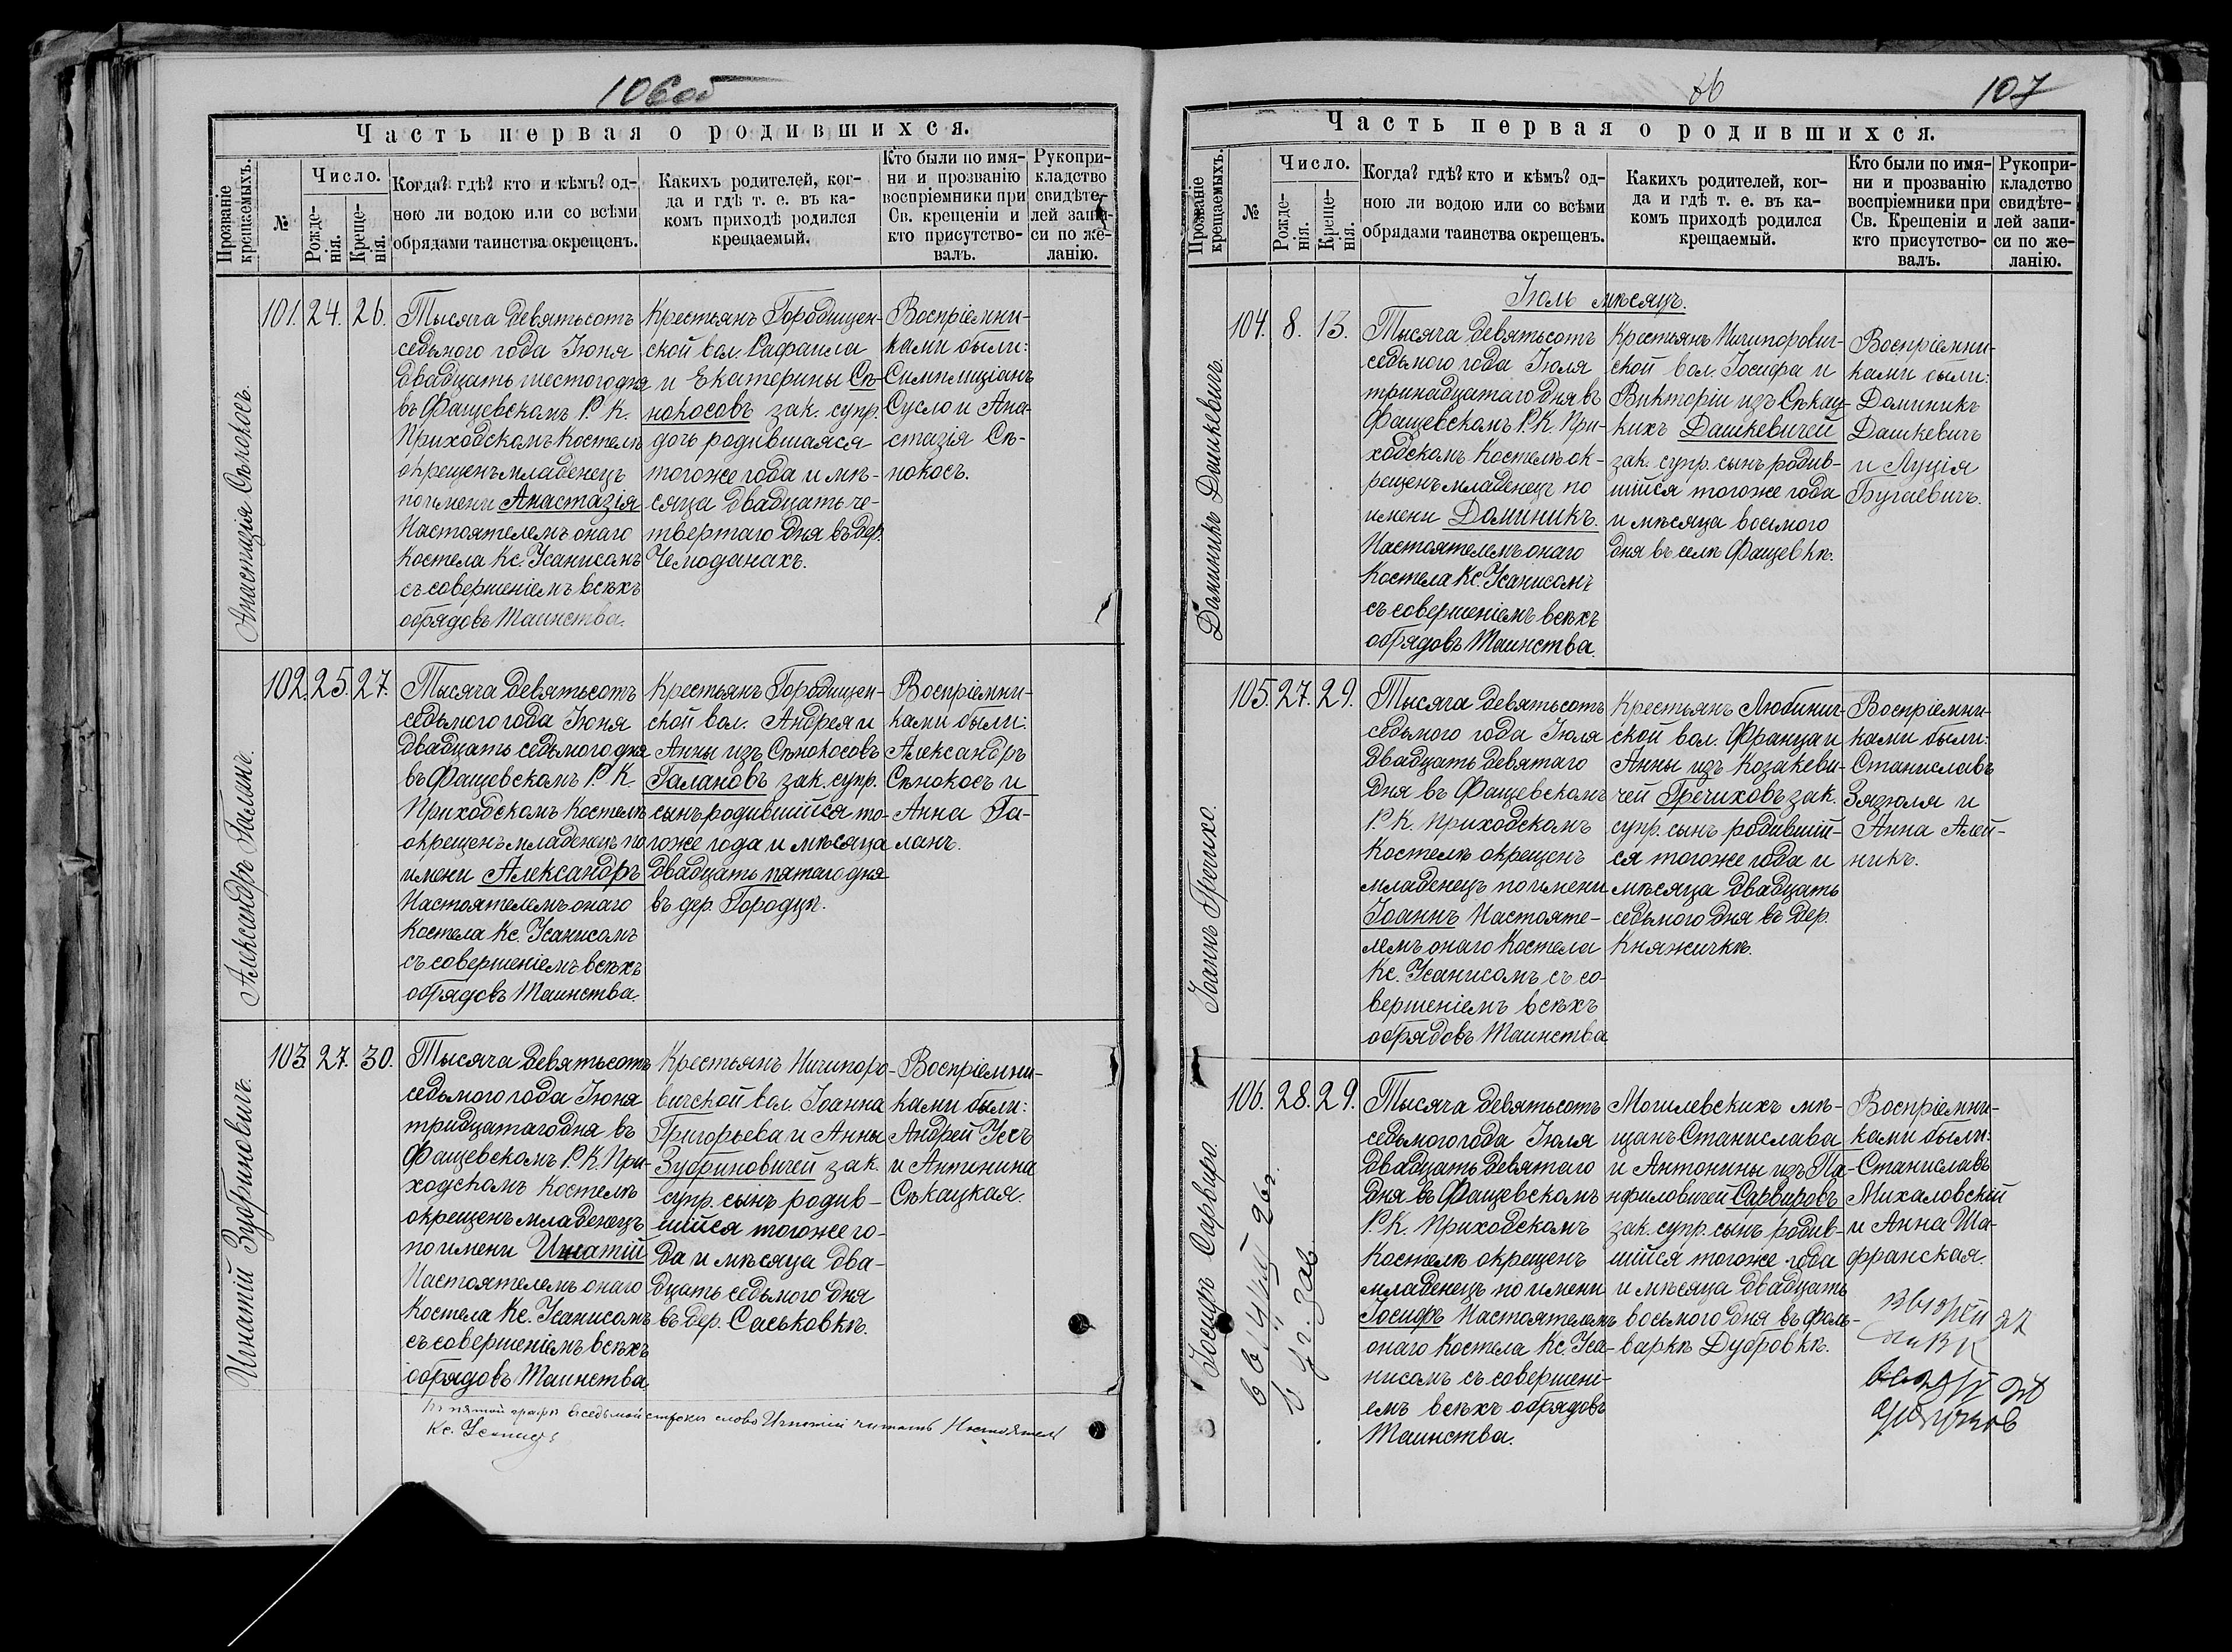 106об
Часть первая о родившихся.
Прозваніе крещаемыхъ.
№
Число.
Рожде-
нія.
Креще-
нія.
Когда? гдѣ? кто и кѣмъ? од-
ною ли водою или со всѣми
обрядами таинства окрещенъ.
Какихъ родителей, ког-
да и гдѣ т. е. въ ка-
комъ приходѣ родился
крещаемый.
Кто были по имя-
ни и прозванію
воспріемники при
Св. крещеніи и
кто присутство-
валъ.
Рукопри-
кладство
свидѣте-
лей запи-
си по же-
ланію.
Анастазія Сѣнокосъ.
101. 24. 26.
Тысяча девятьсотъ
седьмого года Іюня
двадцать шестого дня
въ Фащевскомъ Р. К.
Приходскомъ Костелѣ
окрещенъ младенецъ
по имени Анастазія
Настоятелемъ онаго
Костела Кс. Усанисомъ
съ совершеніемъ всѣхъ
обрядовъ Таинства.
Крестьянъ Городищен-
ской вол. Рафаила
и Екатерины Сѣ-
нокосовъ зак. супр.
дочь родившаяся
тогоже года и мѣ-
сяца двадцать че-
твертаго дня въ дер.
Чемоданахъ.
Воспріемни-
ками были:
Симплиціанъ
Сусло и Ана-
стазія Сѣ-
нокосъ.
Александръ Галанъ.
102. 25. 27.
Тысяча девятьсотъ
седьмого года Іюня
двадцать седьмого дня
въ Фащевскомъ Р. К.
Приходскомъ Костелѣ
окрещенъ младенецъ по
имени Александръ
Настоятелемъ онаго
Костела Кс. Усанисомъ
съ совершеніемъ всѣхъ
обрядовъ Таинства.
Крестьянъ Городищен-
ской вол. Андрея и
Анны изъ Сѣнокосовъ
Галановъ зак. супр.
сынъ родившійся то-
гоже года и мѣсяца
двадцать пятаго дня
въ дер. Городцѣ.
Воспріемни-
ками были:
Александръ
Сѣнокосъ и
Анна Га-
ланъ.
Игнатій Зубриновичъ.
103. 27. 30.
Тысяча девятьсотъ
седьмого года Іюня
тридцатаго дня въ
Фащевскомъ Р. К. При-
ходскомъ Костелѣ
окрещенъ младенецъ
по имени Игнатій
Настоятелемъ онаго
Костела Кс. Усанисомъ
съ совершеніемъ всѣхъ
обрядовъ Таинства
Крестьянъ Ничипоро-
вичской вол. Іоанна
Григорьева и Анны
Зубриновичей зак.
супр. сынъ родив-
шійся тогоже го-
да и мѣсяца два-
дцать седьмого дня
въ дер. Саськовкѣ.
Воспріемни-
ками были:
Андрей Усъ
и Антонина
Сѣкацкая.
въ пятой графѣ въ седьмой строкѣ слово Игнатій читать Настоятель
Кс. Усанисъ
36
107
Часть первая о родившихся.
Прозваніе крещаемыхъ.
№
Число.
Рожде-
нія.
Креще-
нія.
Когда? гдѣ? кто и кѣмъ? од-
ною ли водою или со всѣми
обрядами таинства окрещенъ.
Какихъ родителей, ког-
да и гдѣ т. е. въ ка-
комъ приходѣ родился
крещаемый.
Кто были по имя-
ни и прозванію
воспріемники при
Св. Крещеніи и
кто присутство-
валъ.
Рукопри-
кладство
свидѣте-
лей запи-
си по же-
ланію.
Іюль мѣсяцъ.
Доминикъ Дашкевичъ.
104. 8. 13.
Тысяча девятьсотъ
седьмого года Іюля
тринадцатаго дня въ
Фащевскомъ Р. К. При-
ходскомъ Костелѣ ок-
рещенъ младенецъ по
имени Доминикъ.
Настоятелемъ онаго
Костела Кс. Усанисомъ
съ совершеніемъ всѣхъ
обрядовъ Таинства.
Крестьянъ Ничипорович-
ской вол. Іосифа и
Викторіи изъ Сѣкац-
кихъ Дашкевичей
зак. супр. сынъ родив-
шійся тогоже года
и мѣсяца восьмого
дня въ селѣ Фащевкѣ.
Воспріемни-
ками были:
Доминикъ
Дашкевичъ
и Луція
Бугаевичъ.
Іоаннъ Гречихо.
105. 27. 29.
Тысяча девятьсотъ
седьмого года Іюля
двадцать девятаго
дня въ Фащевскомъ
Р. К. Приходскомъ
Костелѣ окрещенъ
младенецъ по имени
Іоаннъ Настояте-
лемъ онаго Костела
Кс. Усанисомъ съ со-
вершеніемъ всѣхъ
обрядовъ Таинства
Крестьянъ Любинич-
ской вол. Франца и
Анны изъ Козакеви-
чей Гречиховъ зак.
супр. сынъ родившій-
ся тогоже года и
мѣсяца двадцать
седьмого дня въ дер.
Княжичкѣ.
Воспріемни-
ками были:
Станиславъ
Зязюля и
Анна Алей-
никъ.
Іосифъ Сарвиро.
106. 28. 29.
Тысяча девятьсотъ
седьмого года Іюля
двадцать девятаго
дня въ Фащевскомъ
Р. К. Приходскомъ
Костелѣ окрещенъ
младенецъ по имени
Іосифъ Настоятелемъ
онаго Костела Кс. Уса-
нисомъ съ совершені-
емъ всѣхъ обрядовъ
Таинства.
Могилевскихъ мѣ-
щанъ Станислава
и Антонины изъ Па-
нфиловичей Сарвировъ
зак. супр. сынъ родив-
шійся тогоже года
и мѣсяца двадцать
восьмого дня въ фоль-
варкѣ Дубровкѣ.
Воспріемни-
ками были:
Станиславъ
Михаловскій
и Анна Ша-
франская.